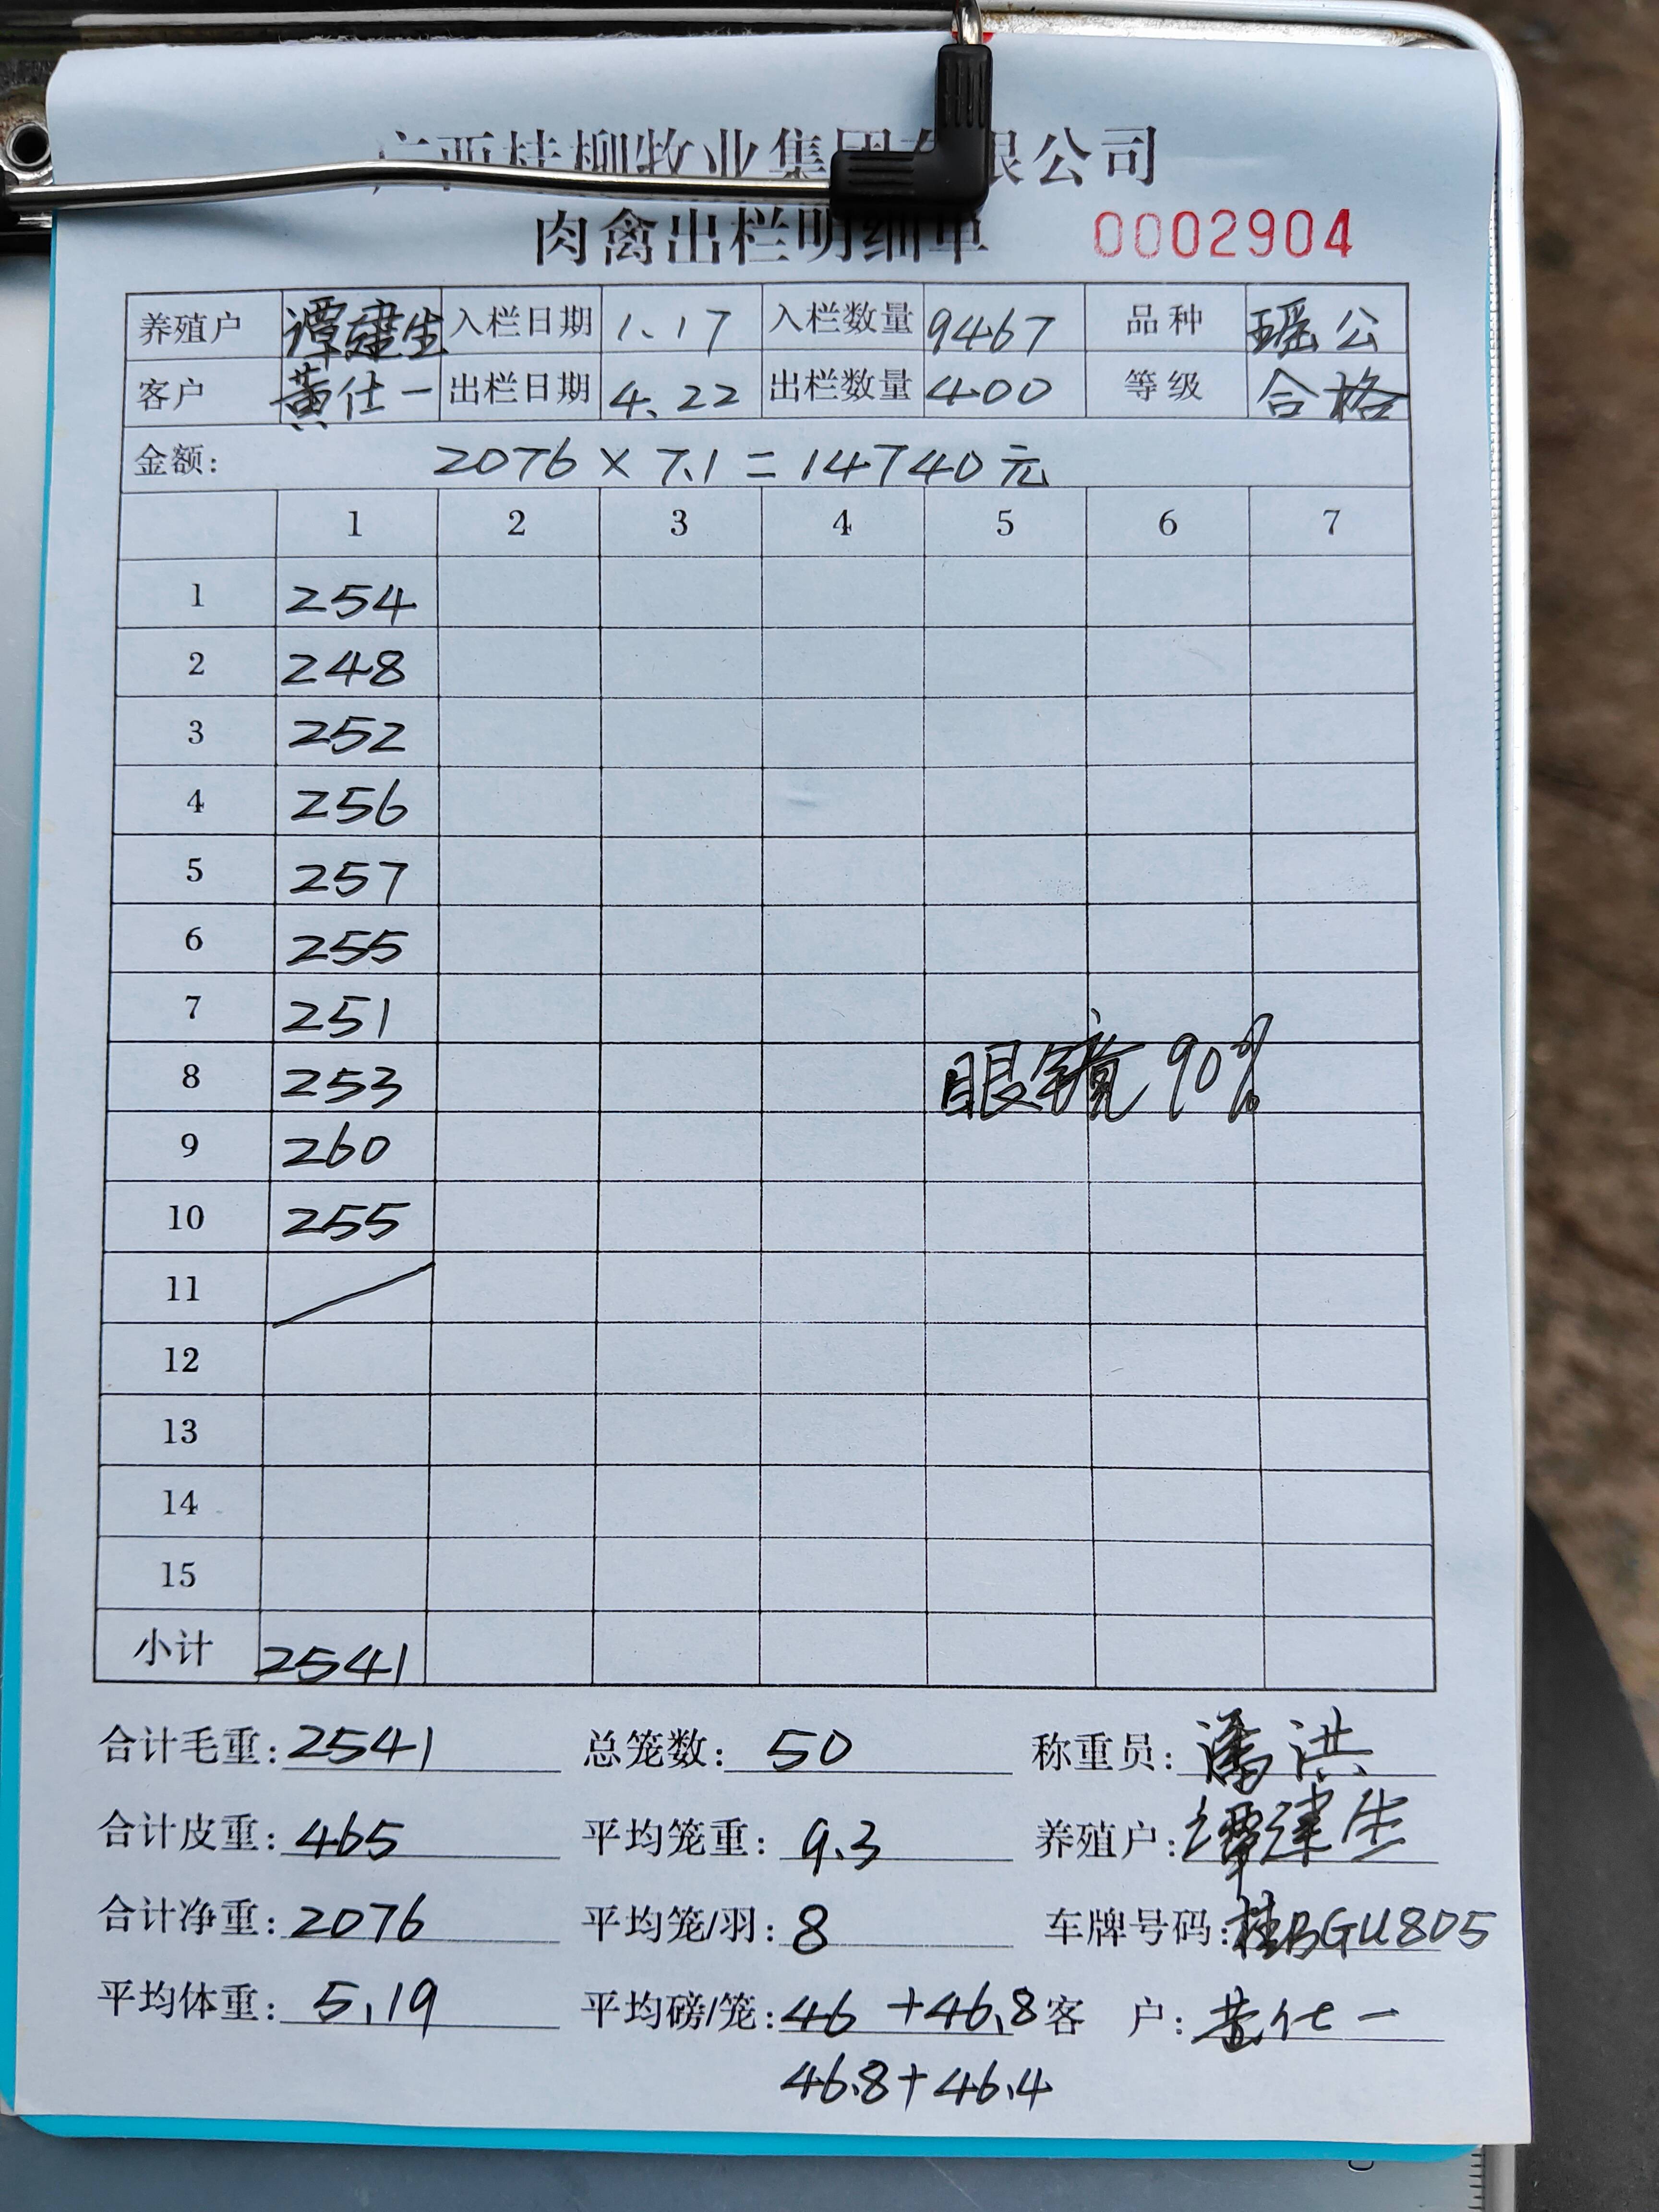 广西桂柳牧业集团有限公司
肉禽出栏明细单 0002904
养殖户 谭建生 入栏日期 1.17 入栏数量 9467 品种 瑶公
客户 黄仕一 出栏日期 4.22 出栏数量 400 等级 合格
金额: 2076×7.1=14740元
1 2 3 4 5 6 7
1 254
2 248
3 252
4 256
5 257
6 255
7 251
8 253 眼镜90%
9 260
10 255
11
12
13
14
15
小计 2541
合计毛重: 2541 总笼数: 50 称重员: 潘洪
合计皮重: 465 平均笼重: 9.3 养殖户: 谭建生
合计净重: 2076 平均笼/羽: 8 车牌号码: 桂BGU805
平均体重: 5.19 平均磅/笼: 46 +46.8 客 户: 黄仕一
46.8+46.4